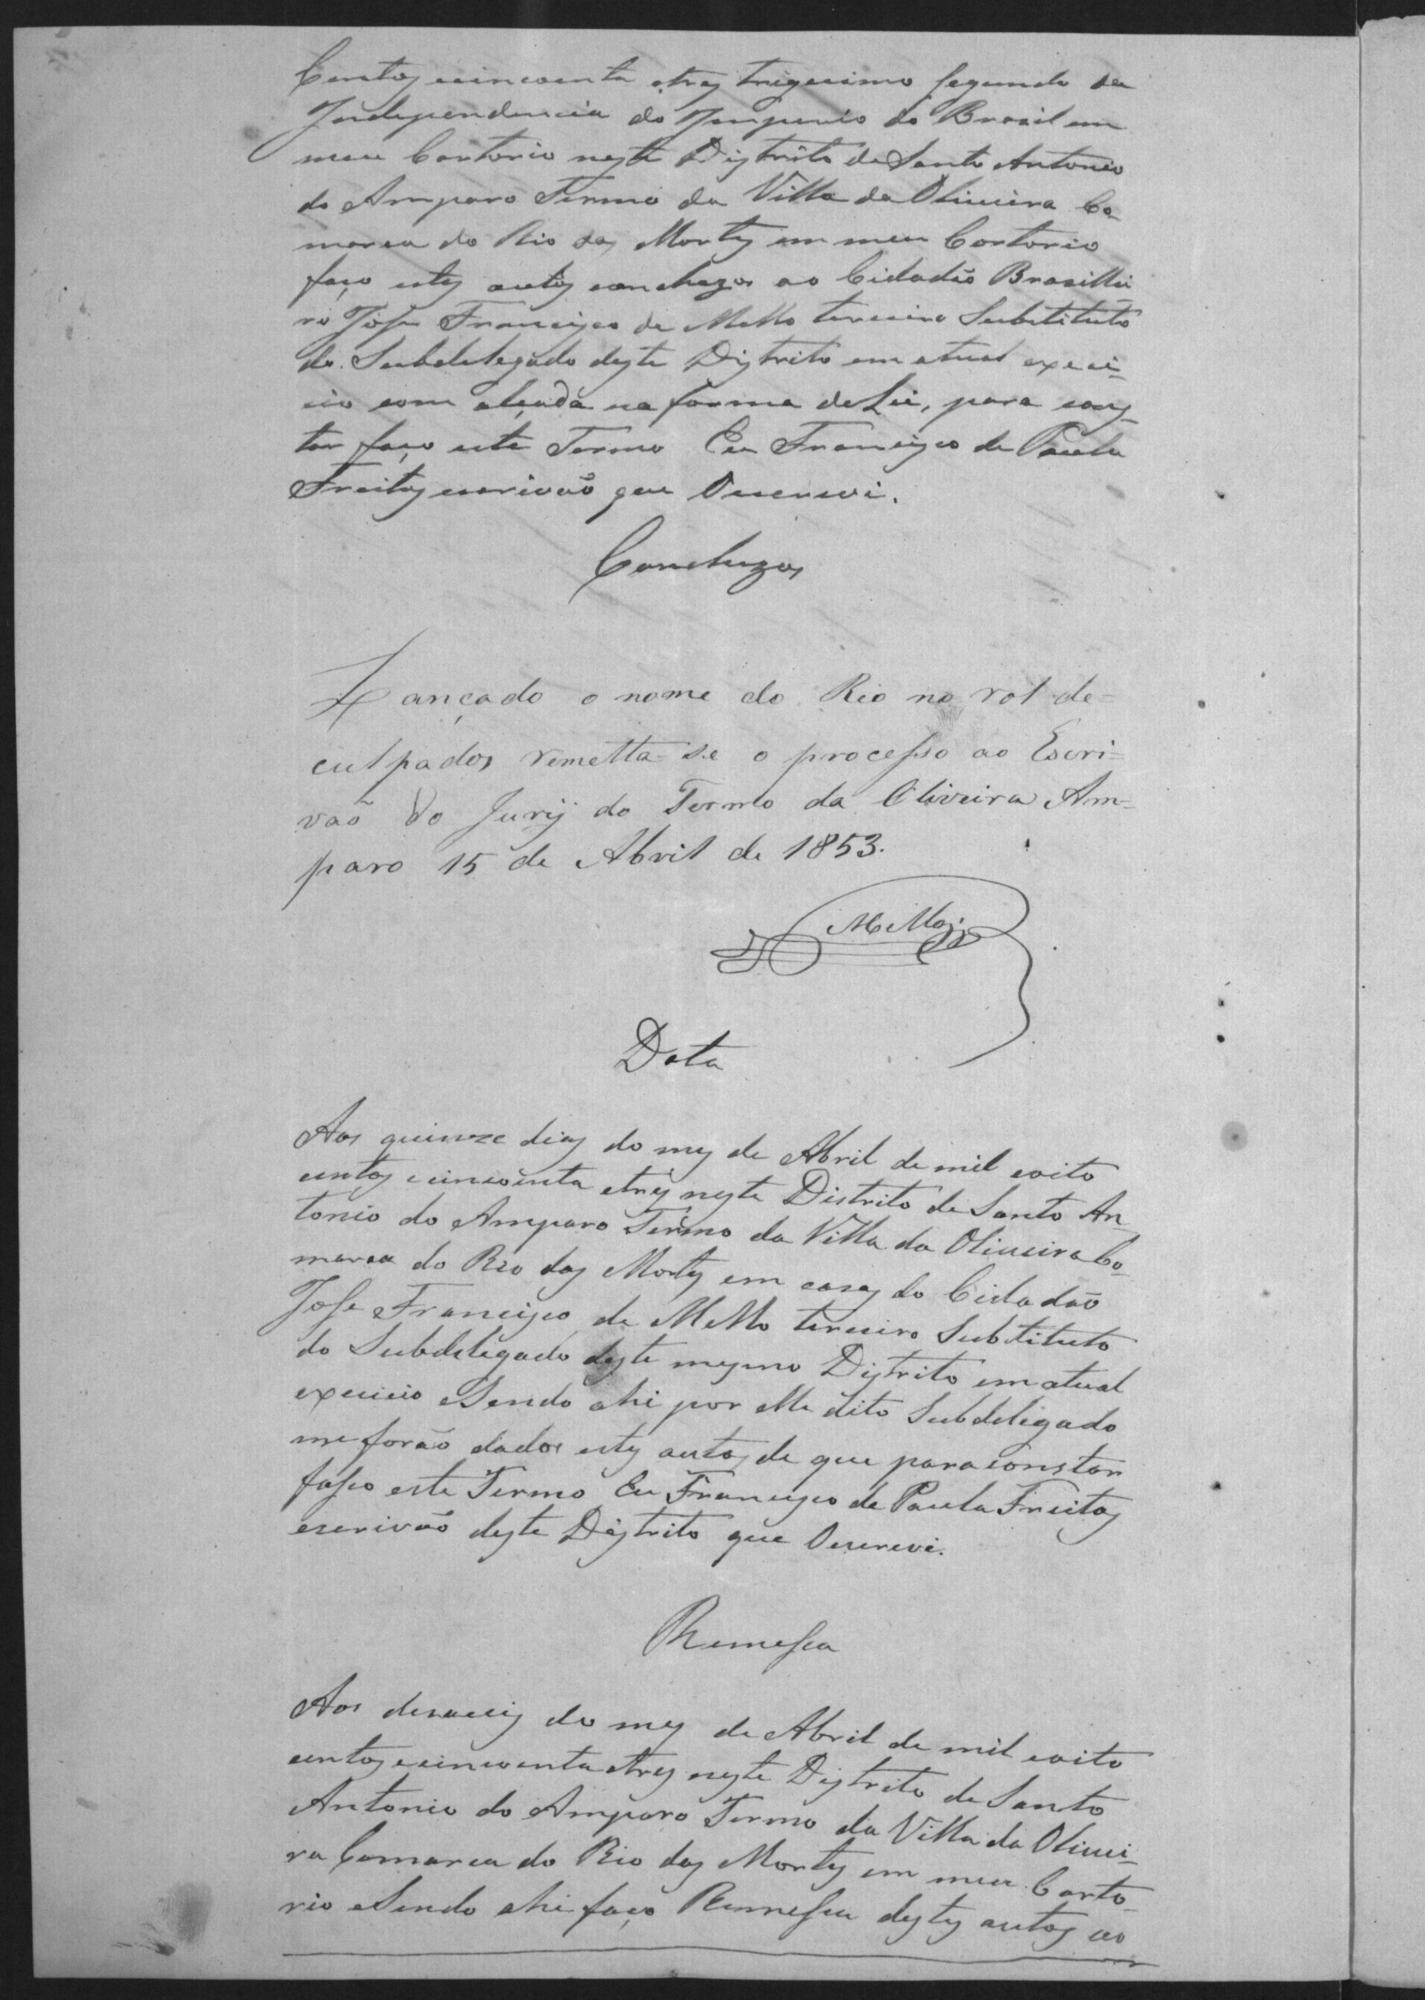 Centos ecincoenta etres trigecimo segundo da
Independencia do Imperio do Brasil em
meu Cartorio neste Distrito de Santo Antonio
do Amparo Termo da Villa da Oliveira Co
marca do Rio das Mortes em meu Cartorio
faço estes autos concluzos ao Cidadão Brasillei
ro Jose Francisco de Mello terceiro Substituto
do Subdelegado deste Distrito em atual exerci-
cio com alçada na forma da Lei, para cons-
tar faço este Termo Eu Francisco de Paula
Freitas escrivão que Oescrevi.
Concluzos
Lançado o nome do Reo no rol de=
culpados remetta-se o processo ao Escri=
vão do Jury do Termo da Oliveira Am=
paro 15 de Abril de 1853.
Mello
Data
Aos quinze dias do mes de Abril de mil eoito
centos ecincoenta etres neste Distrito de Santo An-
tonio do Amparo Termo da Villa da Oliveira Co-
marca do Rio das Mortes em casas do Cidadão
Jose Francisco de Mello terceiro Substituto
do Subdelegado deste mesmo Distrito em atual
exercicio eSendo ahi por elle dito Subdelegado
me forão dados estes autos de que para constar
fasso este Termo Eu Francisco de Paula Freitas
escrivão deste Distrito que Oescrevi.
Remessa
Aos desaceis do mes de Abril de mil eoito
centos ecincoenta etres neste Distrito de Santo
Antonio do Amparo Termo da Villa da Olivei-
ra Comarca do Rio das Mortes em meu Carto-
rio eSendo ahi faço Remessa destes autos ao